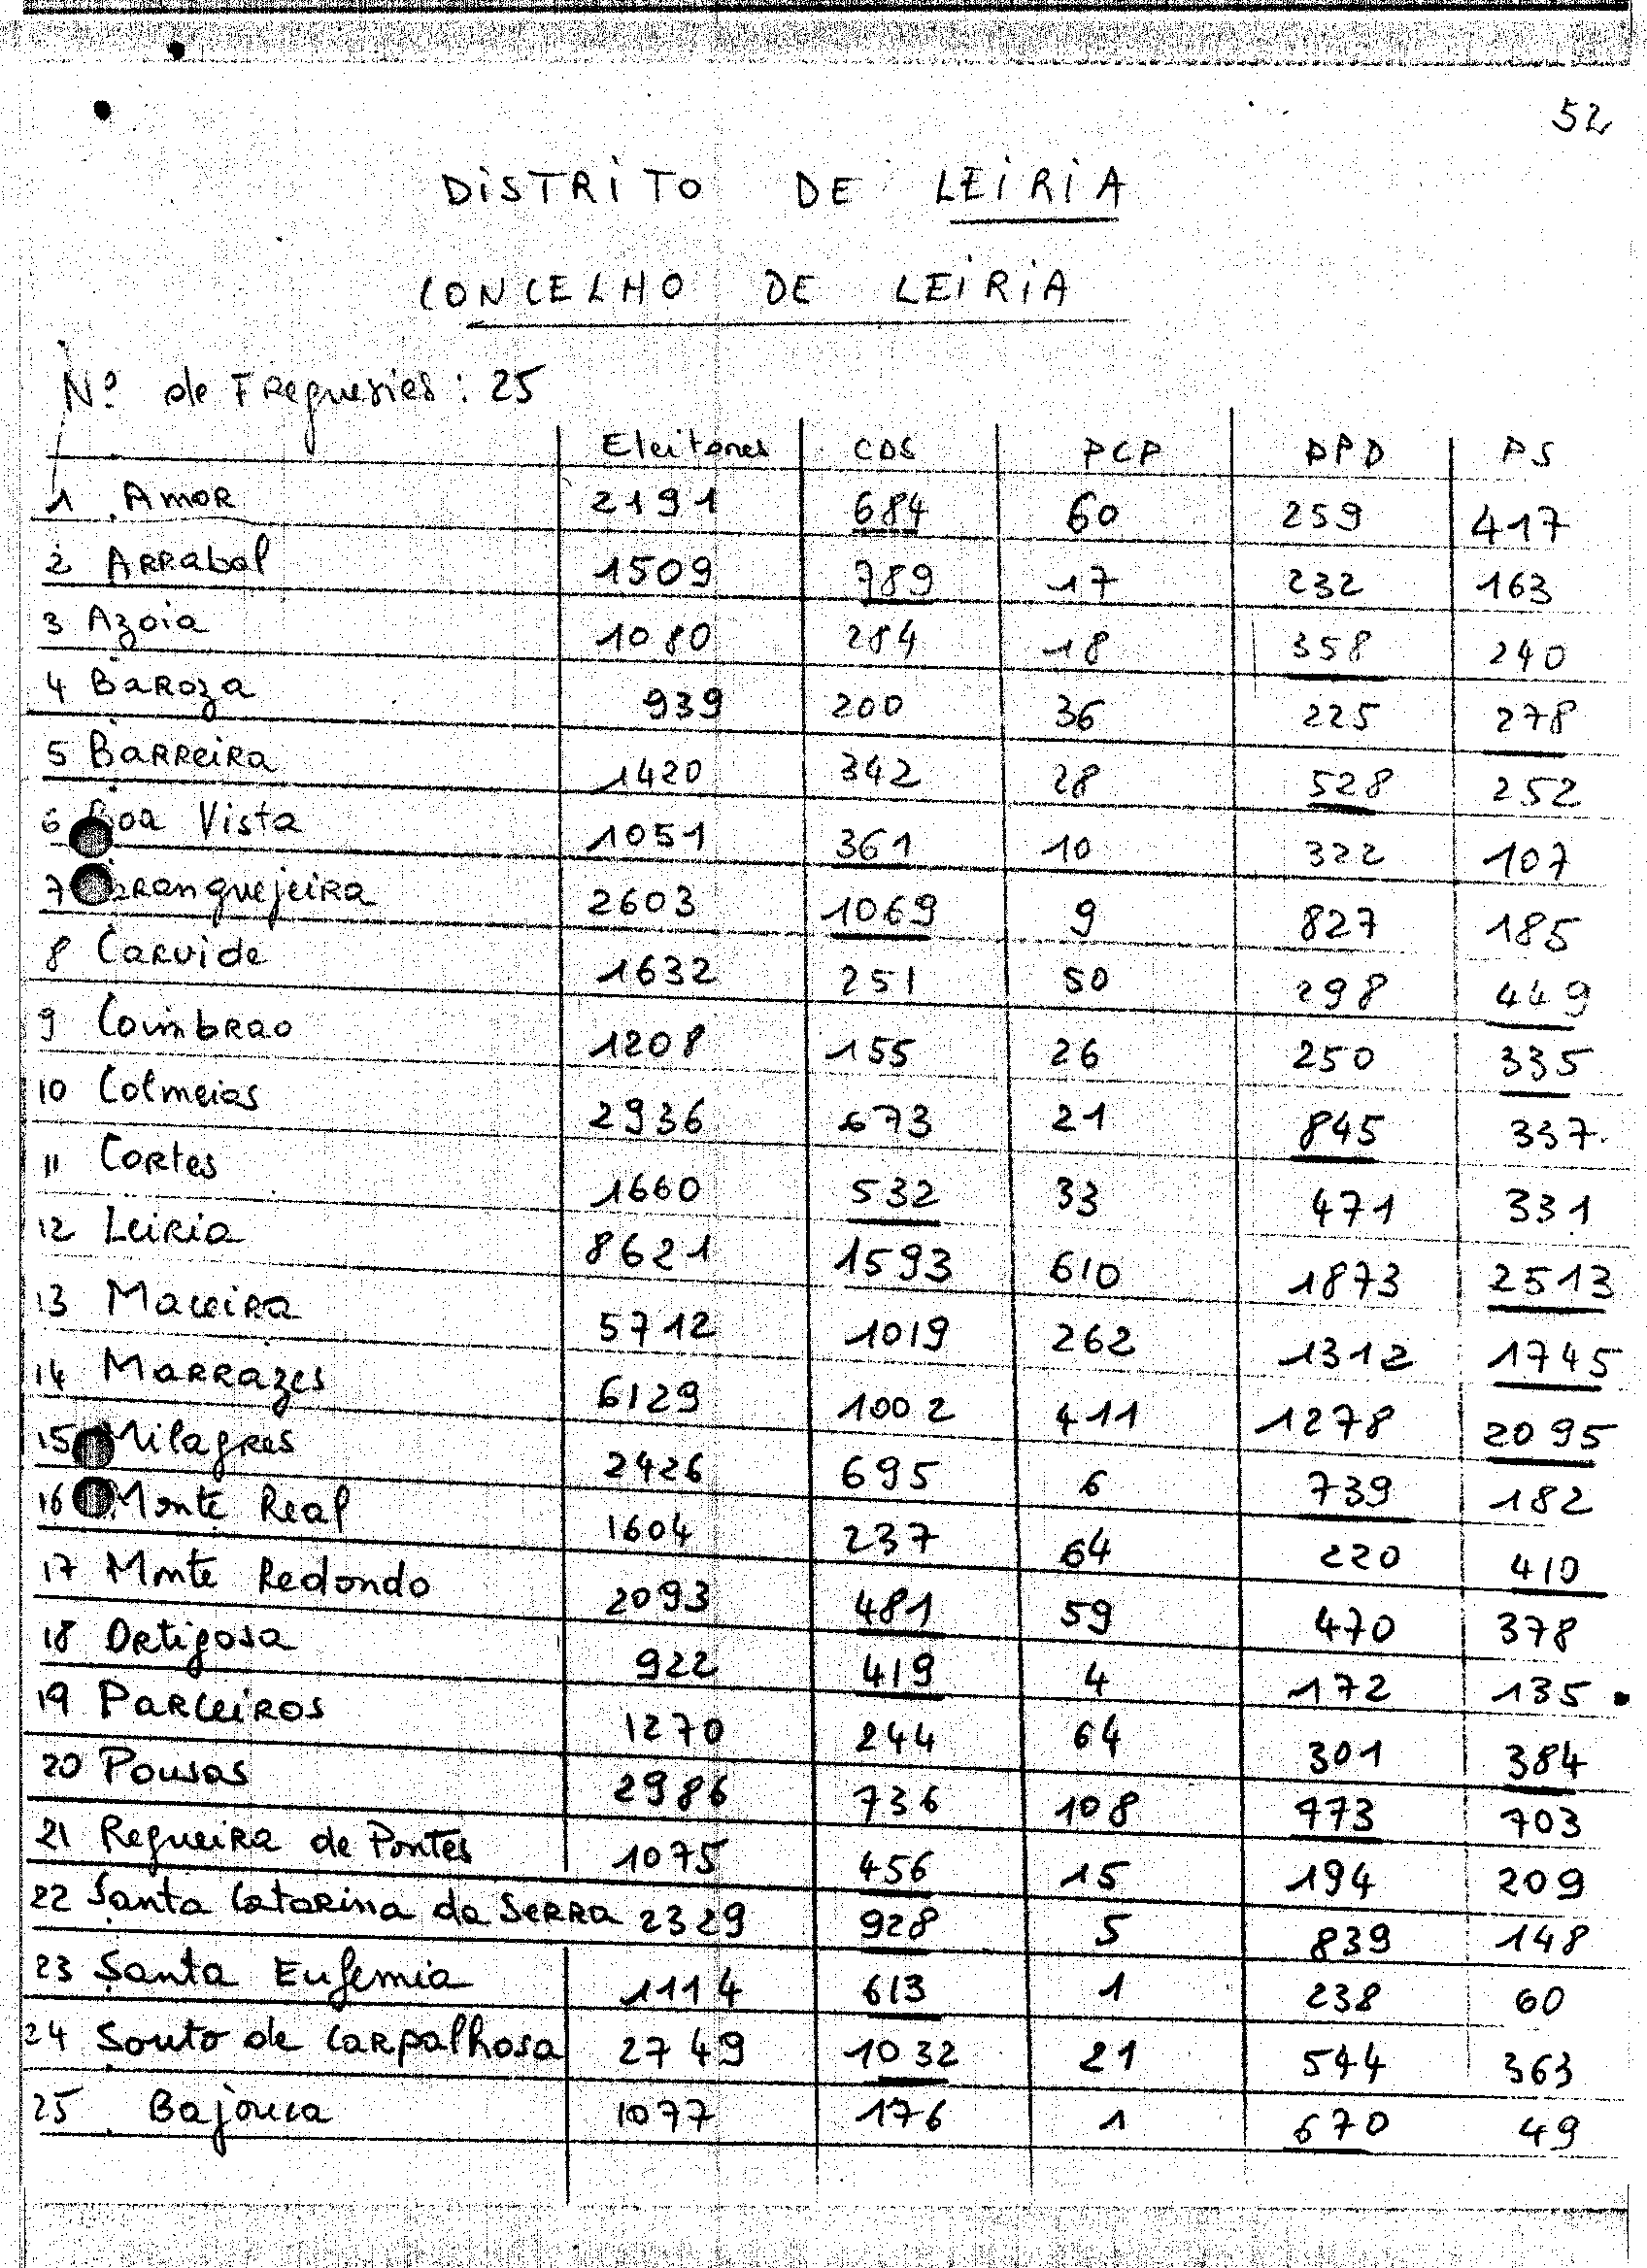 52
DISTRITO DE LEIRIA
CONCELHO DE LEIRIA
Nº de Freguesias : 25
Eleitores CDS PCP PPD PS
1 Amor 2191 684 60 259 417
2 Arrabal 1509 789 17 232 163
3 Azoia 1080 284 18 358 240
4 Baroza 939 200 36 225 278
5 Barreira 1420 342 28 528 252
6 Boa Vista 1051 361 10 322 107
7 Caranguejeira 2603 1069 9 827 185
8 Carvide 1632 251 50 298 449
9 Coimbrao 1208 155 26 250 335
10 Colmeias 2936 673 21 845 337
11 Cortes 1660 532 33 471 331
12 Leiria 8621 1593 610 1873 2513
13 Maceira 5712 1019 262 1312 1745
14 Marrazes 6129 1002 411 1278 2095
15 Milagres 2426 695 6 739 182
16 Monte Real 1604 237 64 220 410
17 Monte Redondo 2093 481 59 470 378
18 Ortigosa 922 419 4 172 135
19 Parceiros 1270 244 64 301 384
20 Pousos 2986 736 108 773 703
21 Regueira de Pontes 1075 456 15 194 209
22 Santa Catarina da Serra 2329 928 5 839 148
23 Santa Eufemia 1114 613 1 238 60
24 Souto de Carpalhosa 2749 1032 21 544 363
25 Bajouca 1077 176 1 670 49